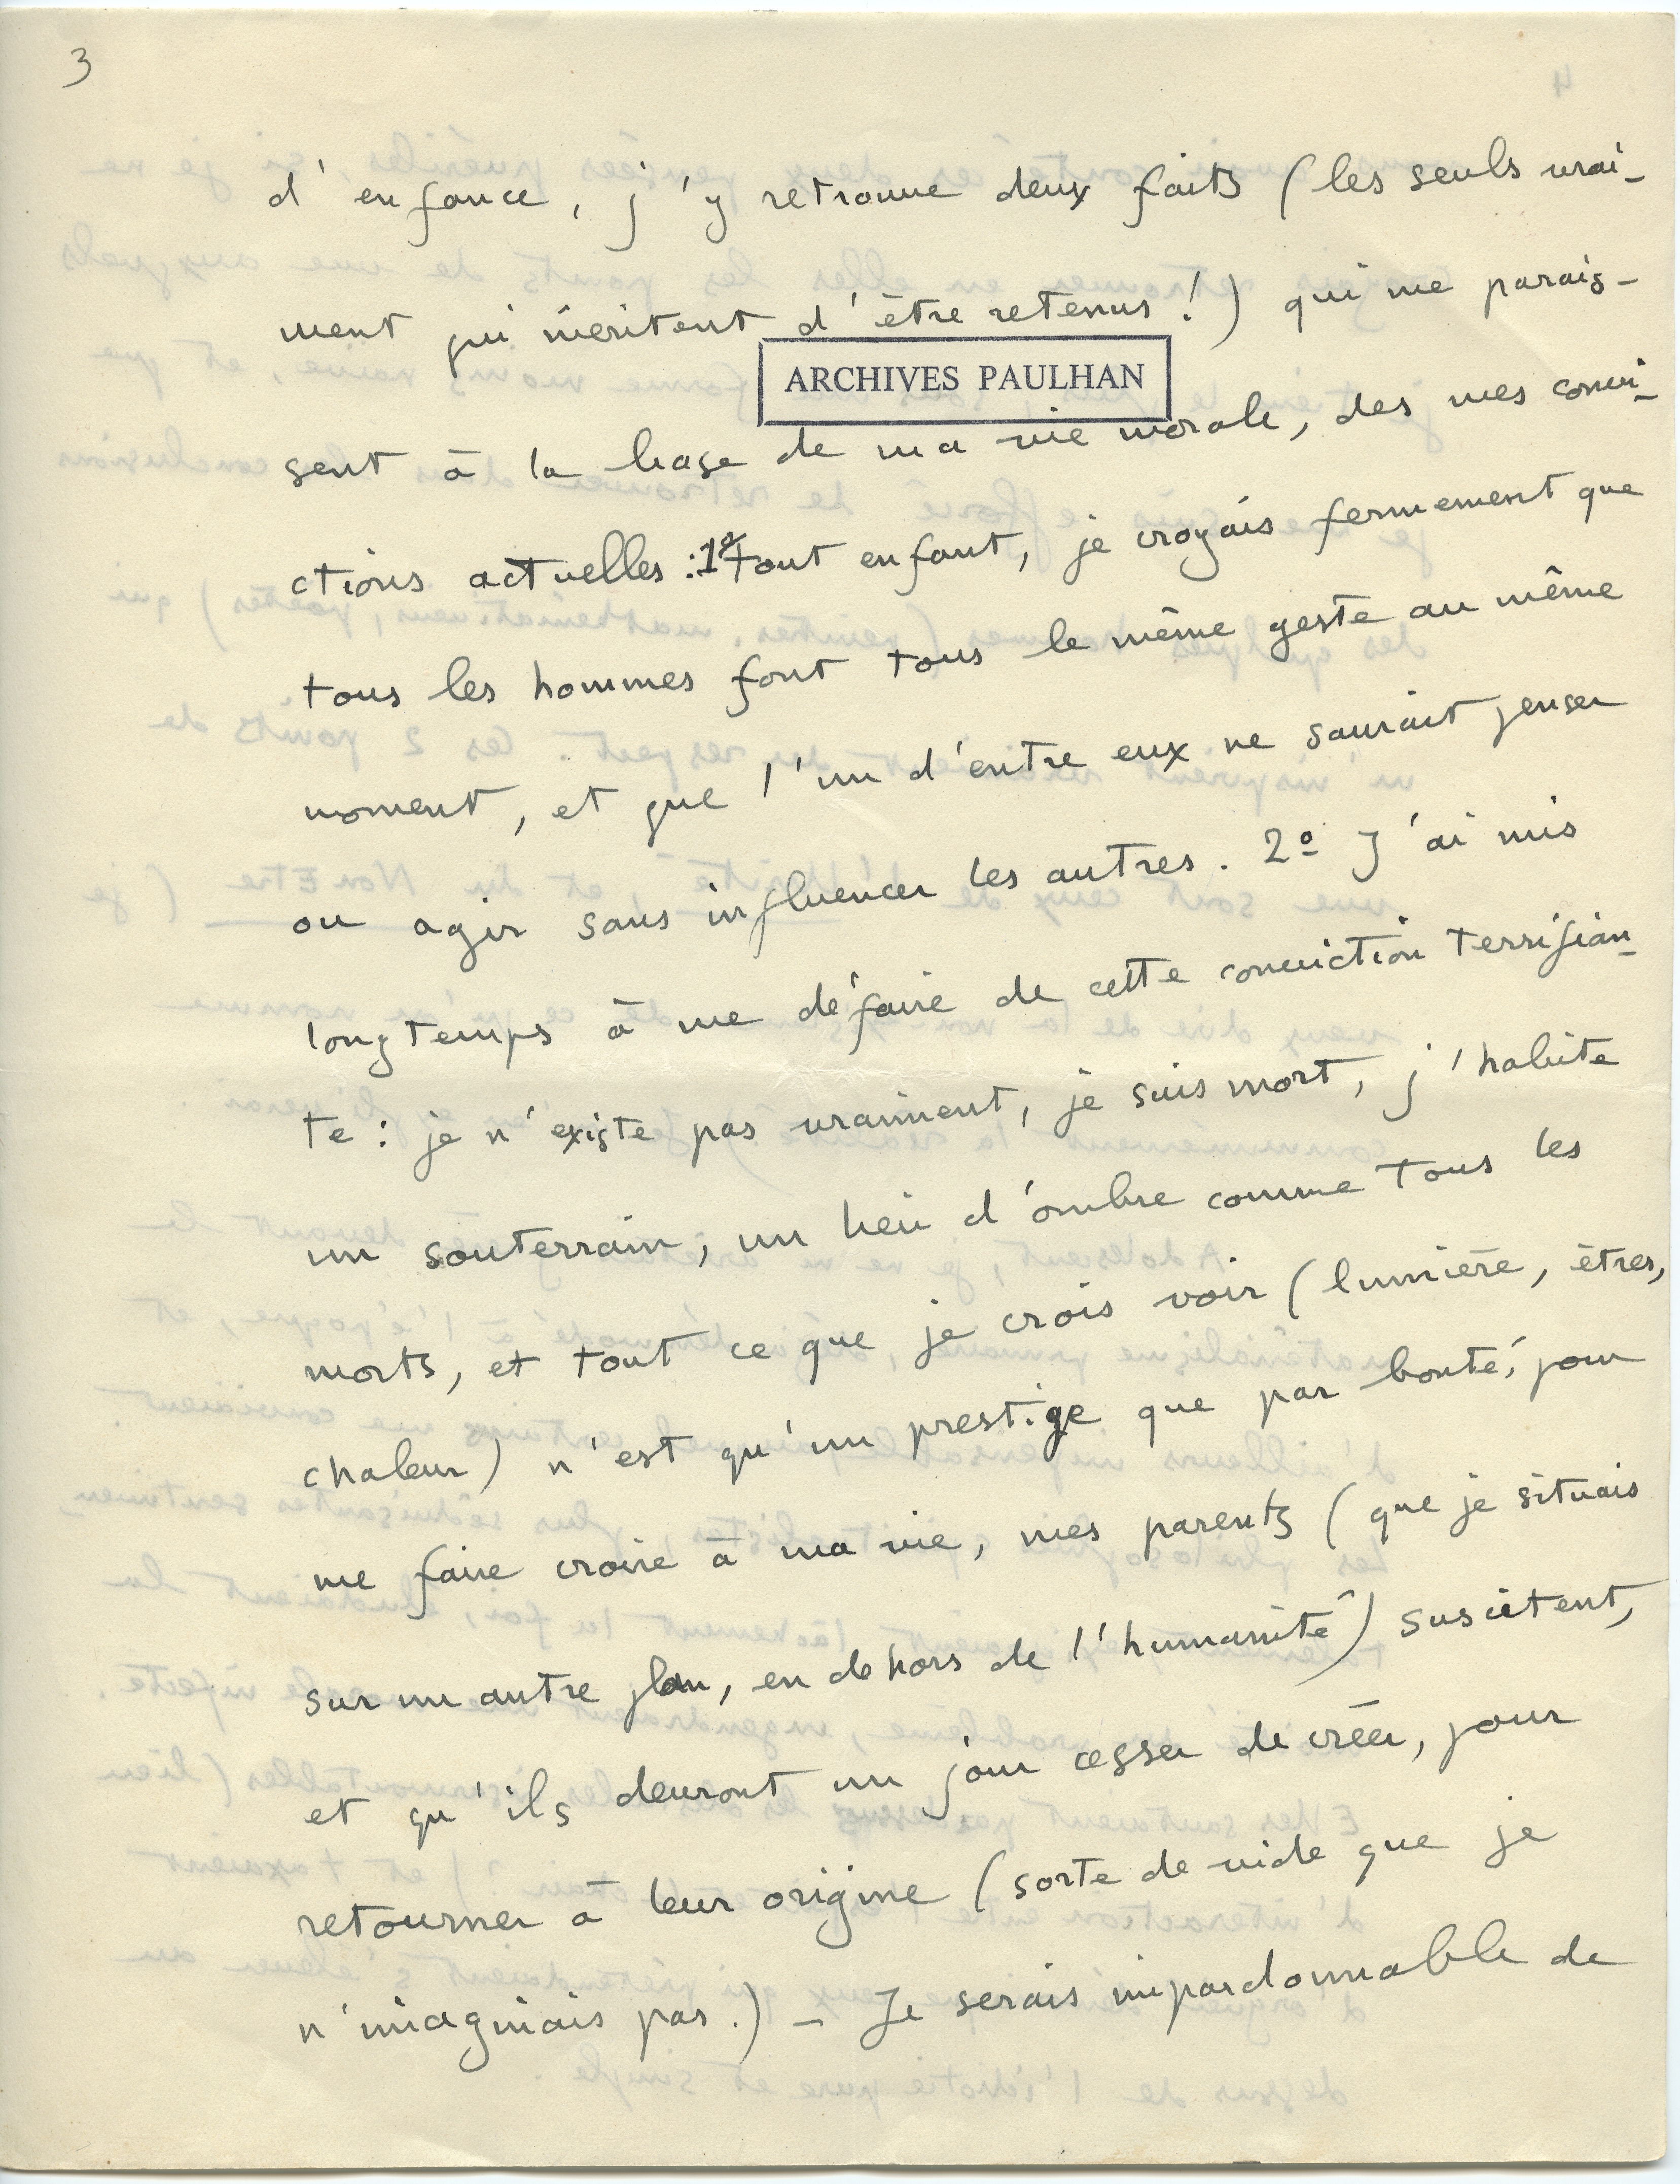 3
d'enfance, j'y retrouve deux faits (les seuls vrai-
ment qui méritent d'être retenus !) qui me parais-
ARCHIVES PAULHAN
sent à la base de ma vie morale, des mes convi-
ctions actuelles : 1º tout enfant, je croyais fermement que
tous les hommes font tous le même geste au même
moment, et que l'un d'entre eux ne saurait penser
ou agir sans influencer les autres. 2º J'ai mis
longtemps à me défaire de cette conviction terrifian-
te : je n'existe pas vraiment, je suis mort, j'habite
un souterrain, un lieu d'ombre comme tous les
morts, et tout ce que je crois voir (lumière, êtres,
chaleur) n'est qu'un prestige que par bonté, pour
me faire croire à ma vie, mes parents (que je situais
sur un autre plan, en dehors de l'humanité) suscitent,
et qu'ils devront un jour cesser de créer, pour
retourner à leur origine (sorte de vide que je
n'imaginais pas.) — Je serais impardonnable de